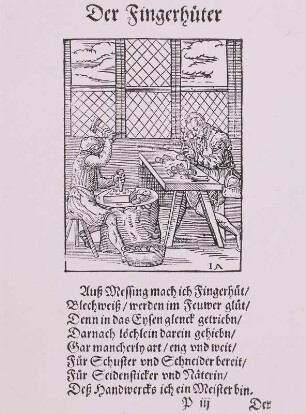 Der Fingerhüter
IA
Auß Messing mach ich Fingerhüt/
Blechweiß/ werden im Feuwer glüt/
Denn in das Eysen glenck getriebn/
Darnach löchlein darein gehiebn/
Gar mancherly art/ eng vnd weit/
Für Schuster vnd Schneider bereit/
Für Seidensticker vnd Näterin/
Deß Handwercks ich ein Meister bin.
P iij Der